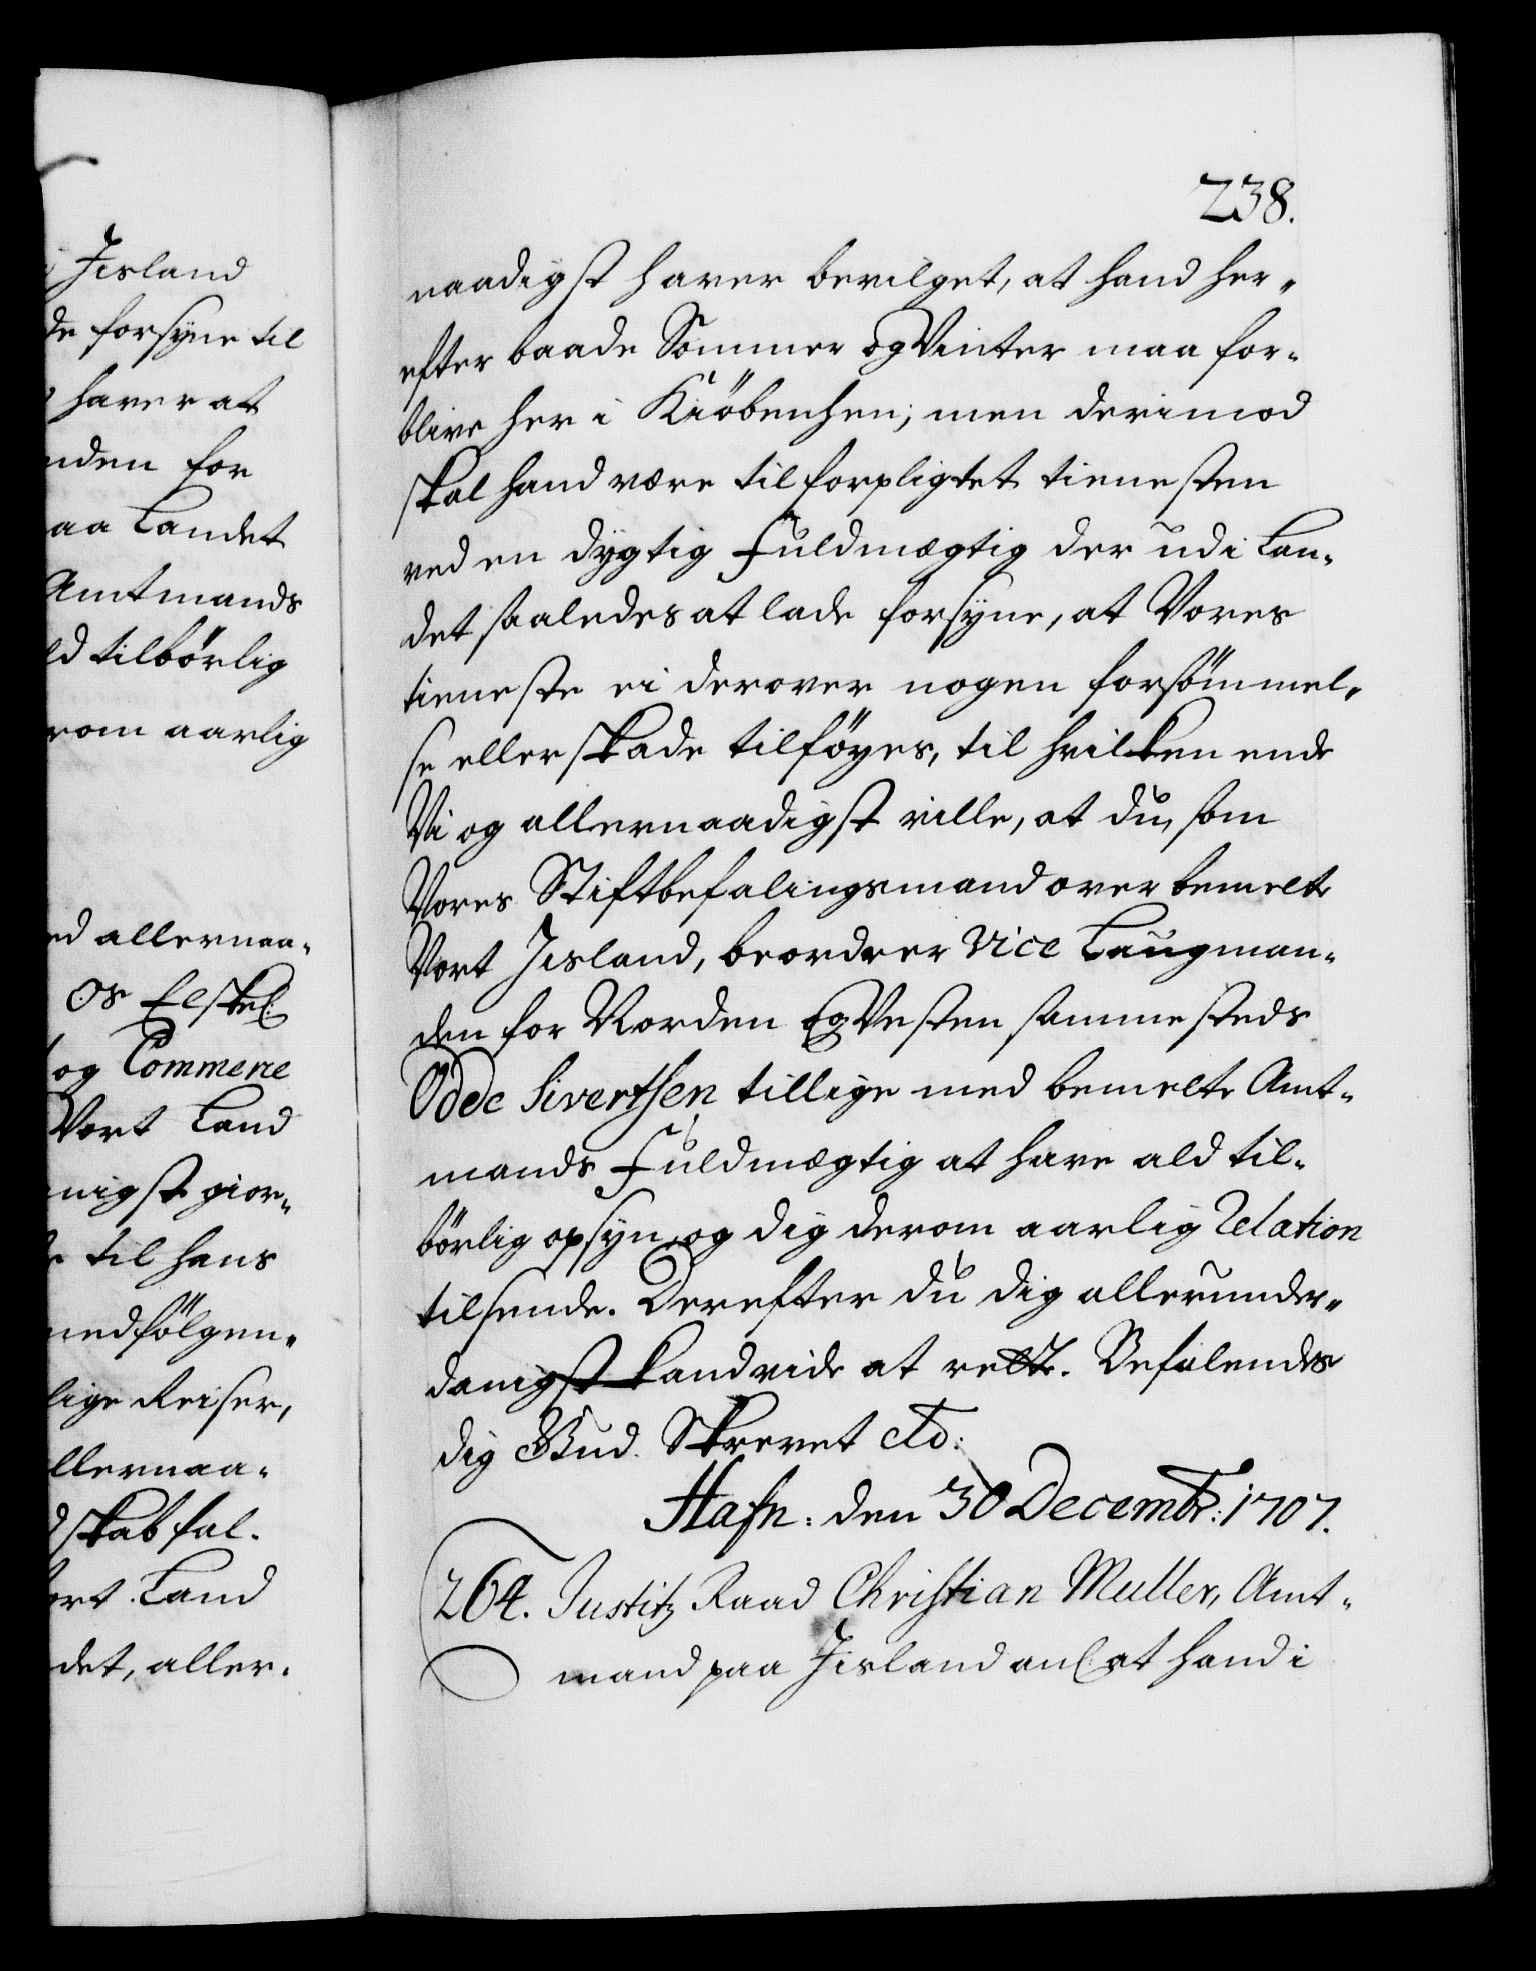 Jisland
de forsyne til
haver at
nden for
aa Landet
Amtmands
ld tilbörlig
rom aarlig
ed allernaa-
Os Elskel:
og Commerce
Vort Land
nigst gior-
til hans
medfölgen-
lige Reiser,
llernaa-
dskab fal-
ort Land
det, aller-
238.
naadigst haver bevilget, at hand her-
efter baade Sommer og Vinter maa for-
blive her i Kiöbenhen; men derimod
skal hand være tilforpligtet tienesten
ved en dygtig Fuldmægtig der udi Lan-
det saaledes at lade forsyne, at Vores
tieneste ei derover nogen forsömmel-
se eller skade tilföyes, til hvilken ende
Vi og allernaadigst ville, at du, som
Vores Stiftbefalingsmand over bemelte
Vort Jisland, beordrer Vice Laugman-
den for Norden og Vesten sammesteds
Odde Sivertsen tillige med bemelte Amt-
mands Fuldmægtig at have ald til-
börlig opsyn, og dig derom aarlig Relation
tilsende. Derefter du dig allerunder-
danigst kand vide at rette. Befalendes
dig Gud. Skrevet etc:
Hafn: den 30 Decembr: 1707.
264. Justitz Raad Christian Muller, Amt-
mand paa Jisland anl. at hand i